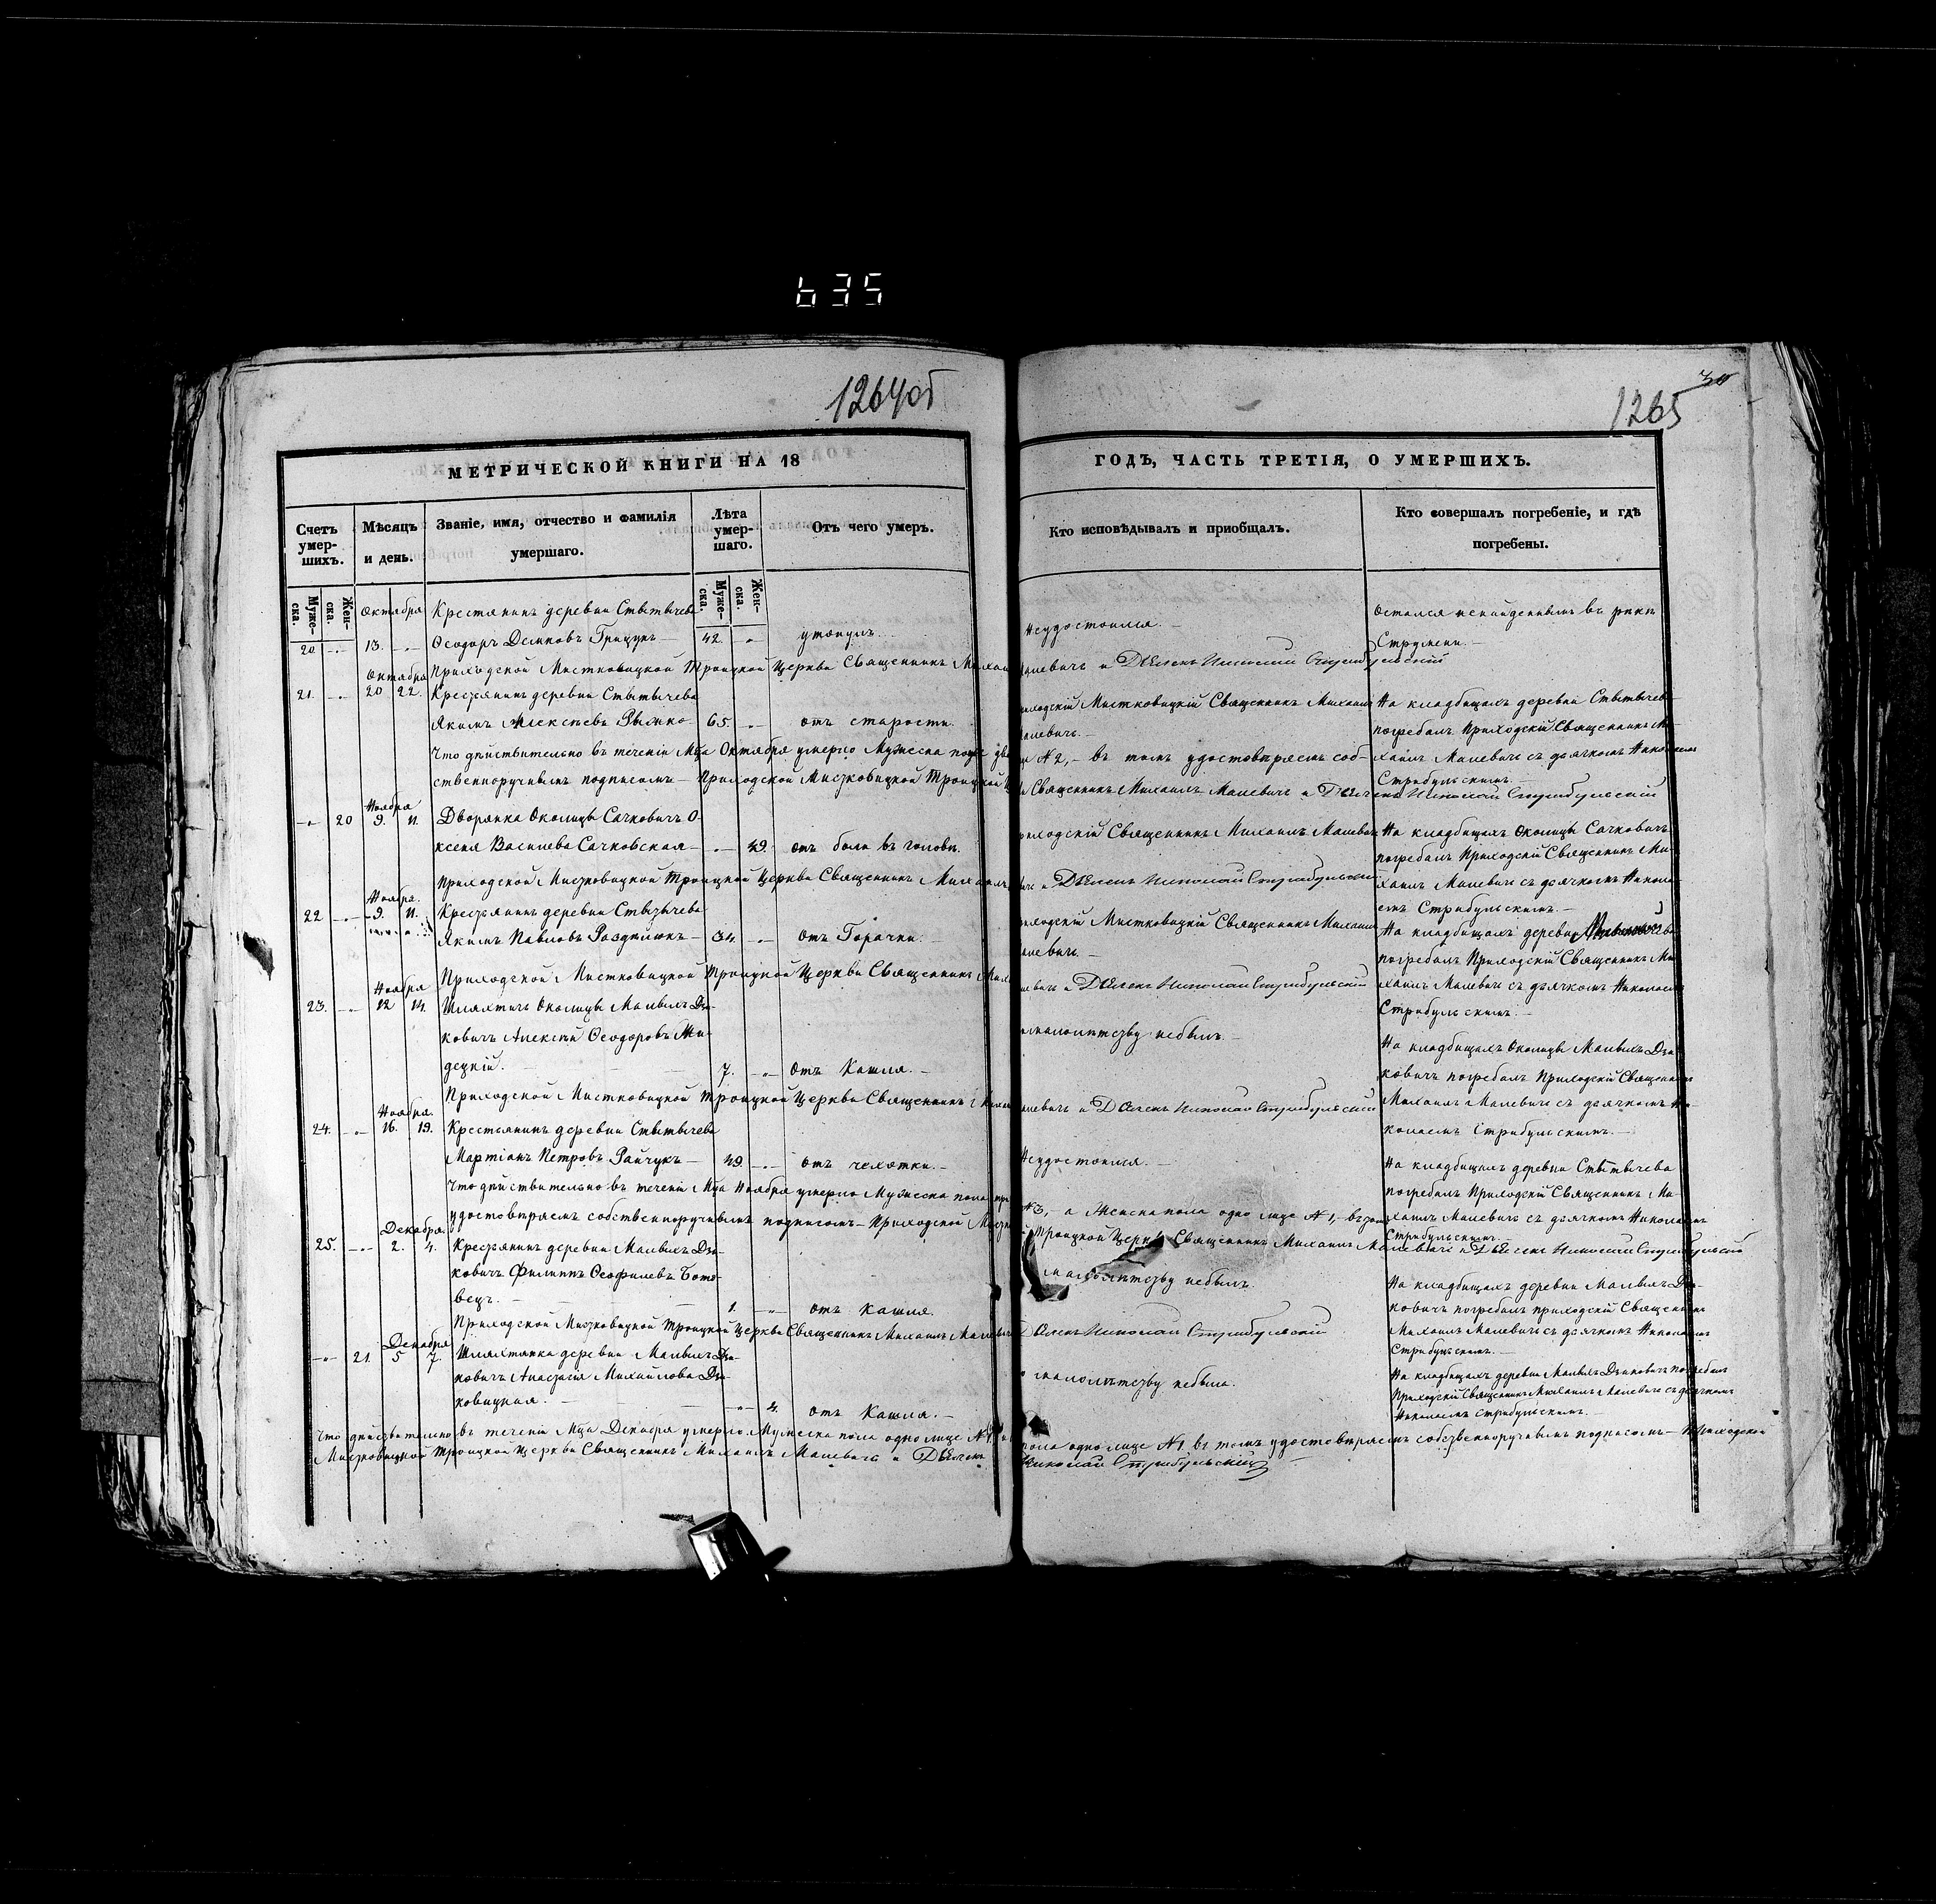 635
1264об
30
1265
МЕТРИЧЕСКОЙ КНИГИ НА 18
ГОДЪ, ЧАСТЬ ТРЕТІЯ, О УМЕРШИХЪ.
Счетъ умершихъ.
Мѣсяцъ и день.
Званіе, имя, отчество и фамилія умершаго.
Лѣта умершаго.
Отъ чего умеръ.
Кто исповѣдывалъ и приобщалъ.
Кто совершалъ погребеніе, и гдѣ погребены.
Мужеска.
Женска.
Мужеска.
Женска.
Октября
Крестянинъ деревни Свѣтычева
20 13.
Ѳеодоръ Демковъ Грицукъ 42. утонулъ.
Неудостоился.
Остался ненайденнымъ въ рѣкѣ
Струмени.
Приходской Мистковицкой Троицкой Церкви Священникъ Михаилъ Малевичъ и Дьячекъ Николай Стрибульскій
Октября
21. 20 22. Крестянинъ деревни Свѣтычева
Якимъ Алексѣевъ 65. отъ старости.
Приходскій Мистковицкій Священникъ Михаилъ
Малевичъ.
На кладбищахъ деревни Свѣтычева
погребалъ Приходскій Священникъ Ми-
хаилъ Малевичъ съ дьячкомъ Николаемъ
Стрибульскимъ.
Что дѣйствительно въ теченіи Мца Октября умерло Мужеска пола два № 2, въ томъ удостовѣряемъ соб-
ственноручнымъ подписомъ Приходской Мистковицкой Троицкой Священникъ Михаилъ Малевичъ и Дьячекъ Николай Стрибульскій
Ноября
20 9. 11. Дворянка Околицы Сачковичъ О-
ксеня Васильева Сачковская 49. отъ боли въ головѣ.
Приходскій Священникъ Михаилъ Малевичъ
На кладбищахъ Околицы Сачковичъ
погребалъ Приходскій Священникъ Ми-
хаилъ Малевичъ съ дьячкомъ Никола-
емъ Стрибульскимъ.
Приходской Мистковицкой Троицкой Церкви Священникъ Михаилъ и Дьячекъ Николай Стрибульскій
Ноября
22 9. 11. Крестянинъ деревни Свѣтычева
Якимъ Павловъ 34. отъ Горячки.
Приходскій Мистковицкій Священникъ Михаилъ
Малевичъ.
На кладбищахъ деревни
погребалъ Приходскій Священникъ Ми-
хаилъ Малевичъ съ дьячкомъ Николаемъ
Стрибульскимъ.
Приходской Мистковицкой Троицкой Церкви Священникъ и Дьячекъ Николай Стрибульскій
Ноября
23. 12 14. Шляхтичъ Околицы Малыхъ Дзи-
ковичъ Алексѣй Ѳеодоровъ
7. отъ Кашля.
малолѣтству небылъ.
На кладбищахъ Околицы Малыхъ Дзи-
ковичъ погребалъ Приходскій Священникъ
Михаилъ Малевичъ съ дьячкомъ Ни-
колаемъ Стрибульскимъ.
Приходской Мистковицкой Троицкой Церкви Священникъ Михаилъ Малевичъ и Дьячекъ Николай Стрибульскій
Ноября
24. 16. 19. Крестянинъ деревни Свѣтычева
Мартіанъ Петровъ Райчукъ 49. отъ чехотки.
Неудостоился.
На кладбищахъ деревни Свѣтычева
погребалъ Приходскій Священникъ Ми-
хаилъ Малевичъ съ дьячкомъ Николаемъ
Стрибульскимъ.
Что дѣйствительно въ теченіи Мца Ноября умерло Мужеска пола три № 3, а Женска пола одно лице № 1, въ томъ
удостовѣряемъ собственноручнымъ подписомъ Приходской Троицкой Церкви Священникъ Михаилъ Малевичъ и Дьячекъ Николай Стрибульскій
Декабря
25. 2. 4. Крестянинъ деревни Малыхъ Дзи-
ковичъ Филиппъ Ѳеофилевъ Бото-
вецъ. 1. отъ кашля.
малолѣтству небылъ.
На кладбищахъ деревни Малыхъ Дзи-
ковичъ погребалъ приходскій Священникъ
Михаилъ Малевичъ съ дьячкомъ Николаемъ
Стрибульскимъ.
Приходской Мистковицкой Троицкой Церкви Священникъ Михаилъ Малевичъ Дьячекъ Николай Стрибульскій
Декабря
21. 5 7. Шляхтянка деревни Малыхъ Дзи-
ковичъ Анастасія Михайлова Дзи-
ковицкая. 4. отъ Кашля.
малолѣтству небыла.
На кладбищахъ деревни Малыхъ Дзиковичъ погребалъ
Приходскій Священникъ Михаилъ Малевичъ съ дьячкомъ
Николаемъ Стрибульскимъ.
Что дѣйствительно въ теченіи Мца Декабря умерло Мужеска пола одно лице № 1 и пола одно лице № 1, въ томъ удостовѣряемъ собственноручнымъ подписомъ Приходской
Мистковицкой Троицкой Церкви Священникъ Михаилъ Малевичъ и Дьячекъ Николай Стрибульскій